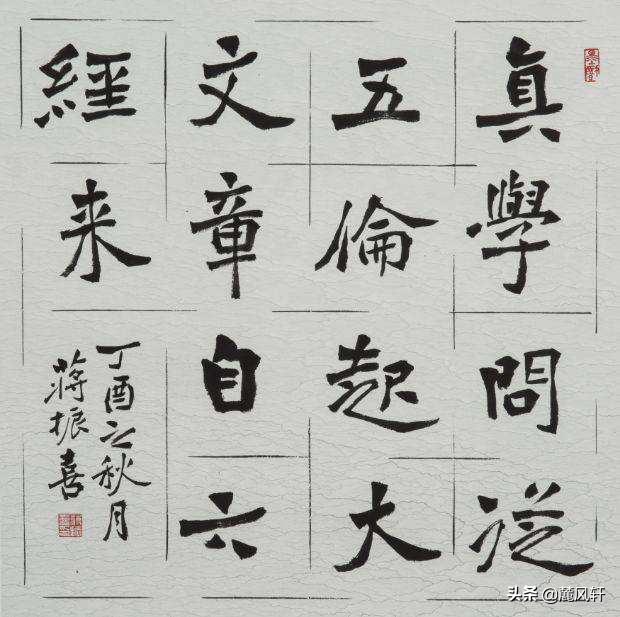 真學問從
五倫起大
文章自六
經来
丁酉之秋月
蔣振喜
头条 @麓风轩